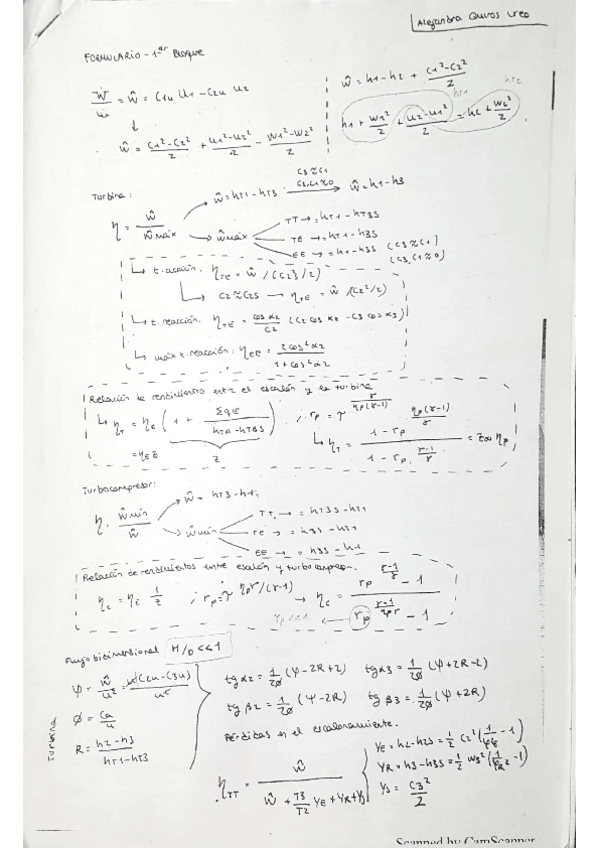 Alejandra Quiros
FORMULARIO - 1er Bloque
Ẇ/ṁ = ŵ = C1u U1 - C2u U2
ŵ = (C1²-C2²)/2 + (U1²-U2²)/2 - (W1²-W2²)/2
ŵ = h1-h2 + (C1²-C2²)/2
hr1 hr2
h1 + W1²/2 + (U2²-U1²)/2 = h2 + W2²/2
Turbina:
η = ŵ/ŵmáx
ŵ = hT1-hT3
C3≈C1
C3,C1≈0
ŵ = h1-h3
ŵmáx
TT → = hT1-hT3S
TE → = hT1-h3S
EE → = h1-h3S (C3≈C1)
(C3,C1≈0)
↳ t. acción. ηTE = ŵ/(C2²/2)
↳ C2≈C2S → ηTE = ŵ/(C2²/2)
↳ t. reacción. ηTE = cos α2/C2 (C2 cos α2 - C3 cos α3)
↳ máx t. reacción: ηEE = 2cos²α2/(1+cos²α2)
Relación de rendimiento entre el escalón y la turbina
↳ ηT = ηE (1 + Σqr/(hTA-hTBS)) ; rp = τ^(γ/(ηp(γ-1)))
= ηE z
z
↳ ηT = (1 - rp^(ηp(γ-1)/γ))/(1 - rp^((γ-1)/γ)) = ηp
Turbocompresor:
η = ŵmín/ŵ
ŵ = hT3-hT1
ŵmín
TT → = hT3S-hT1
TE → = h3S-hT1
EE → = h3S-h1
Relación de rendimientos entre escalón y turbocompresor.
ηc = ηE 1/z ; rp = τ^(ηpγ/(γ-1)) → ηc = (rp^((γ-1)/γ) - 1)/(rp^((γ-1)/ηpγ) - 1)
Flujo bidimensional H/D<<1
Turbina
ψ = ŵ/u² = u(C2u-C3u)/u²
ϕ = Ca/u
R = (h2-h3)/(hT1-hT3)
tg α2 = 1/2ϕ (ψ-2R+2) tg α3 = 1/2ϕ (ψ+2R-2)
tg β2 = 1/2ϕ (ψ-2R) tg β3 = 1/2ϕ (ψ+2R)
Pérdidas en el escalonamiento.
ηTT = ŵ/(ŵ + T3/T2 YE + YR + YS)
YE = h2-h2S = 1/2 C2² (1/φE² - 1)
YR = h3-h3S = 1/2 W3² (1/φR² - 1)
YS = C3²/2
Scanned by CamScanner